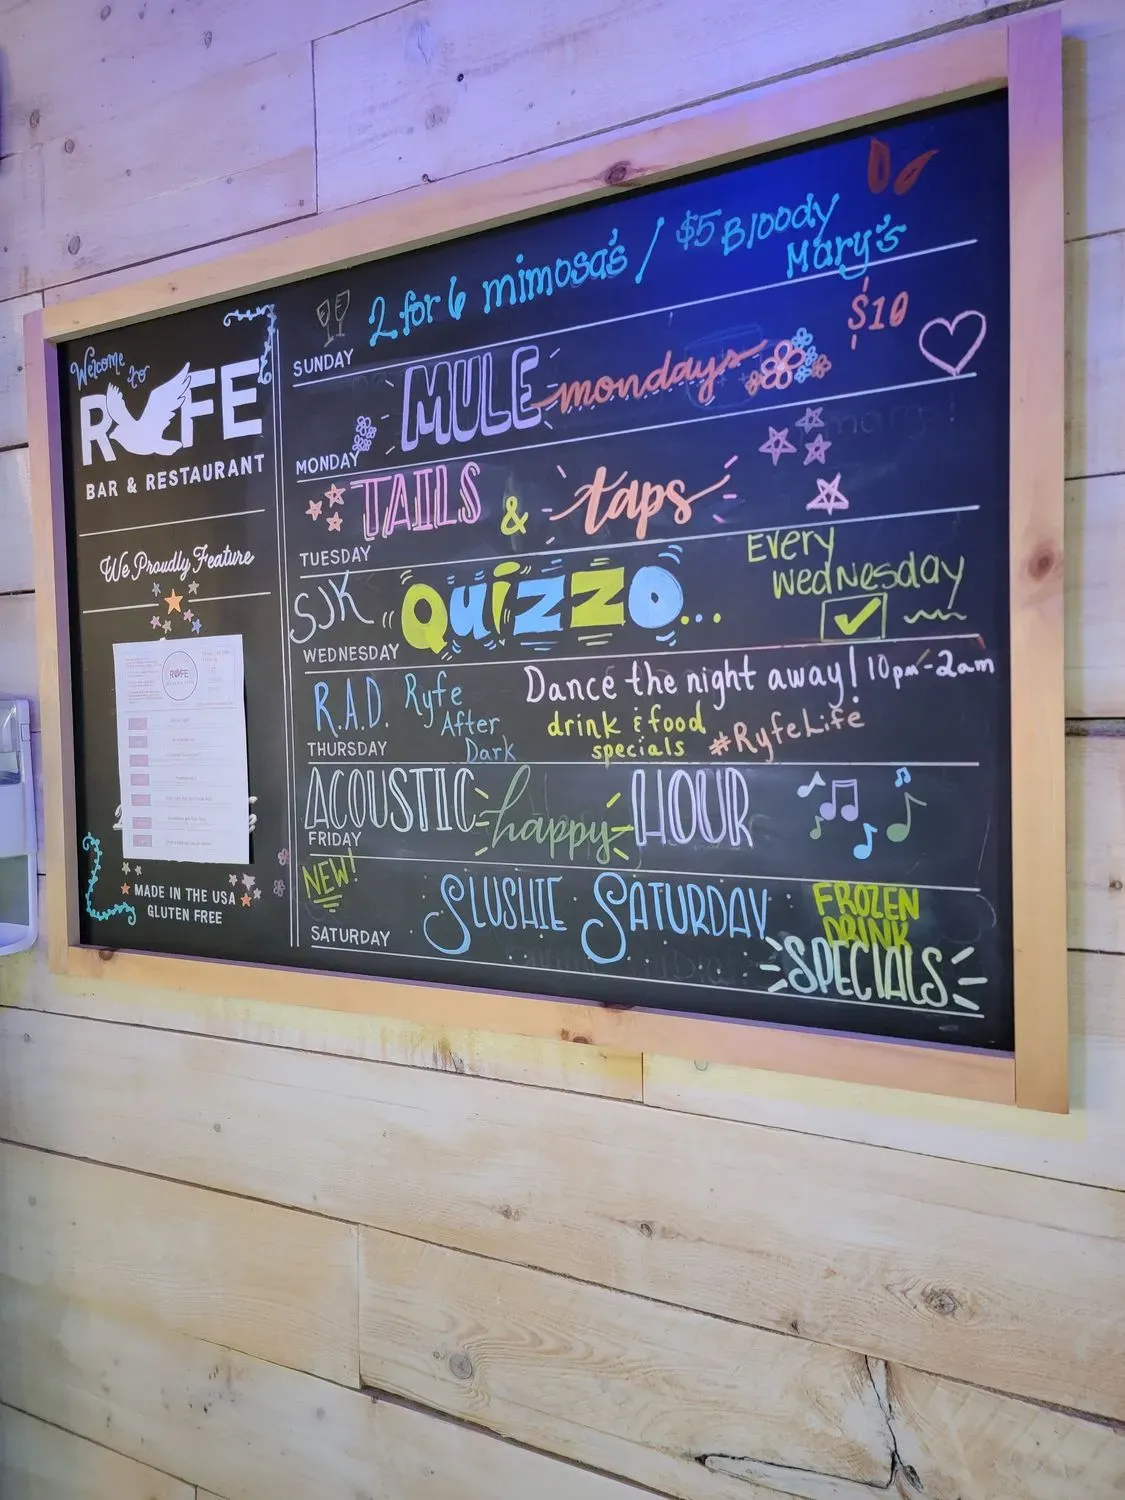 Welcome to
RYFE
BAR & RESTAURANT
We Proudly Feature
RYFE
MADE IN THE USA
GLUTEN FREE
2 for 6 mimosa's / $5 Bloody
Mary's
SUNDAY
$10
MULE mondays
MONDAY
TAILS & taps
TUESDAY
SJK QUIZZO...
Every
Wednesday
WEDNESDAY
R.A.D. Ryfe
After
Dark
Dance the night away! 10pm-2am
drink & food
specials #RyfeLife
THURSDAY
ACOUSTIC happy HOUR
FRIDAY
NEW!
SLUSHIE SATURDAY
FROZEN
DRINK
SPECIALS
SATURDAY